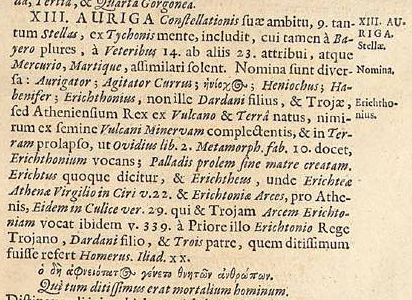 da, Tertia, & Quarta Gorgonea.
XIII. AURIGA Constellationis suæ ambitu, 9. tan-
tum Stellas, ex Tychonis mente, includit, cui tamen à Ba-
yero plures, à Veteribus 14. ab aliis 23. attribui, atque
Mercurio, Martique, assimilari solent. Nomina sunt diver-
sa: Aurigator; Agitator Currus; ἡνίοχος; Heniochus; Ha-
benifer; Erichthonius, non ille Dardani filius, & Trojæ,
sed Atheniensium Rex ex Vulcano & Terrâ natus, nimi-
rum ex semine Vulcani Minervam complectentis, & in Ter-
ram prolapso, ut Ovidius lib. 2. Metamorph. fab. 10. docet,
Erichthonium vocans; Palladis prolem sine matre creatam.
Erichtus quoque dicitur, & Erichtheus, unde Erichteæ
Athenæ Virgilio in Ciri v. 22. & Erichtoniæ Arces, pro Athe-
nis, Eidem in Culice ver. 29. qui & Trojam Arcem Erichto-
niam vocat ibidem v. 339. à Priore illo Erichtonio Rege
Trojano, Dardani filio, & Trois patre, quem ditissimum
fuisse refert Homerus. Iliad. xx.
ὁ δὴ ἀφνειότατος γένετο θνητῶν ἀνθρώπων.
Qui tum ditissimus erat mortalium hominum.
XIII. AU-
RIGA.
Stellæ.
Nomina,
Erichtho-
nius.